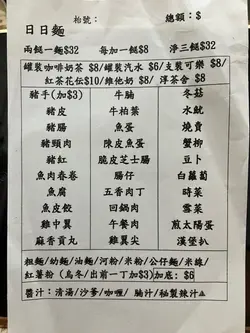 枱號： 總額：$
日日麵
兩餸一麵$32 每加一餸$8 淨三餸$32
罐裝咖啡奶茶 $8/罐裝汽水 $6/支裝可樂 $8/
紅茶花伝$10/維他奶 $8/ 淳茶舍 $8
豬手(加$3) 牛腩 冬菇
豬皮 牛柏葉 水魷
豬腸 魚蛋 燒賣
豬頸肉 陳皮魚蛋 蟹柳
豬紅 脆皮芝士腸 豆卜
魚肉春卷 腸仔 白蘿蔔
魚腐 五香肉丁 時菜
魚皮餃 回鍋肉 雪菜
雞中翼 午餐肉 煎太陽蛋
麻香貢丸 雞翼尖 漢堡扒
粗麵/幼麵/油麵/河粉/米粉/公仔麵/米線/
紅薯粉 (烏冬/出前一丁加$3)加底：$6
醬汁：清湯/沙爹/咖喱/ 腩汁/秘製辣汁